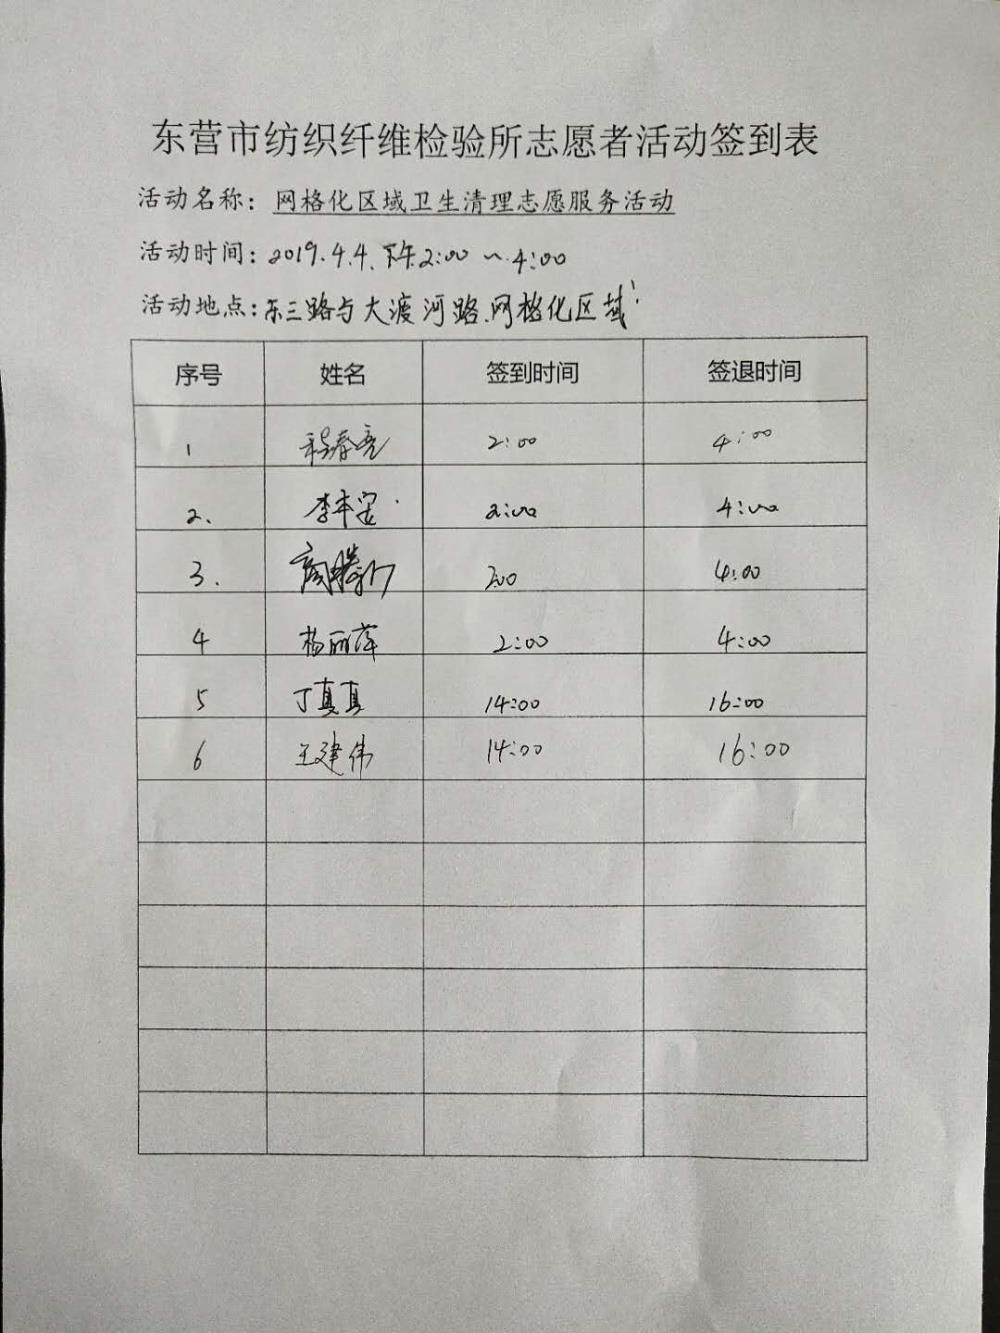 东营市纺织纤维检验所志愿者活动签到表
活动名称：网格化区域卫生清理志愿服务活动
活动时间：2019.4.4.下午2:00～4:00
活动地点：东三路与大渡河路.网格化区域
序号 姓名 签到时间 签退时间
1 2:00 4:00
2. 李本 2:00 4:00
3. 2:00 4:00
4 杨丽萍 2:00 4:00
5 丁真真 14:00 16:00
6 王建伟 14:00 16:00